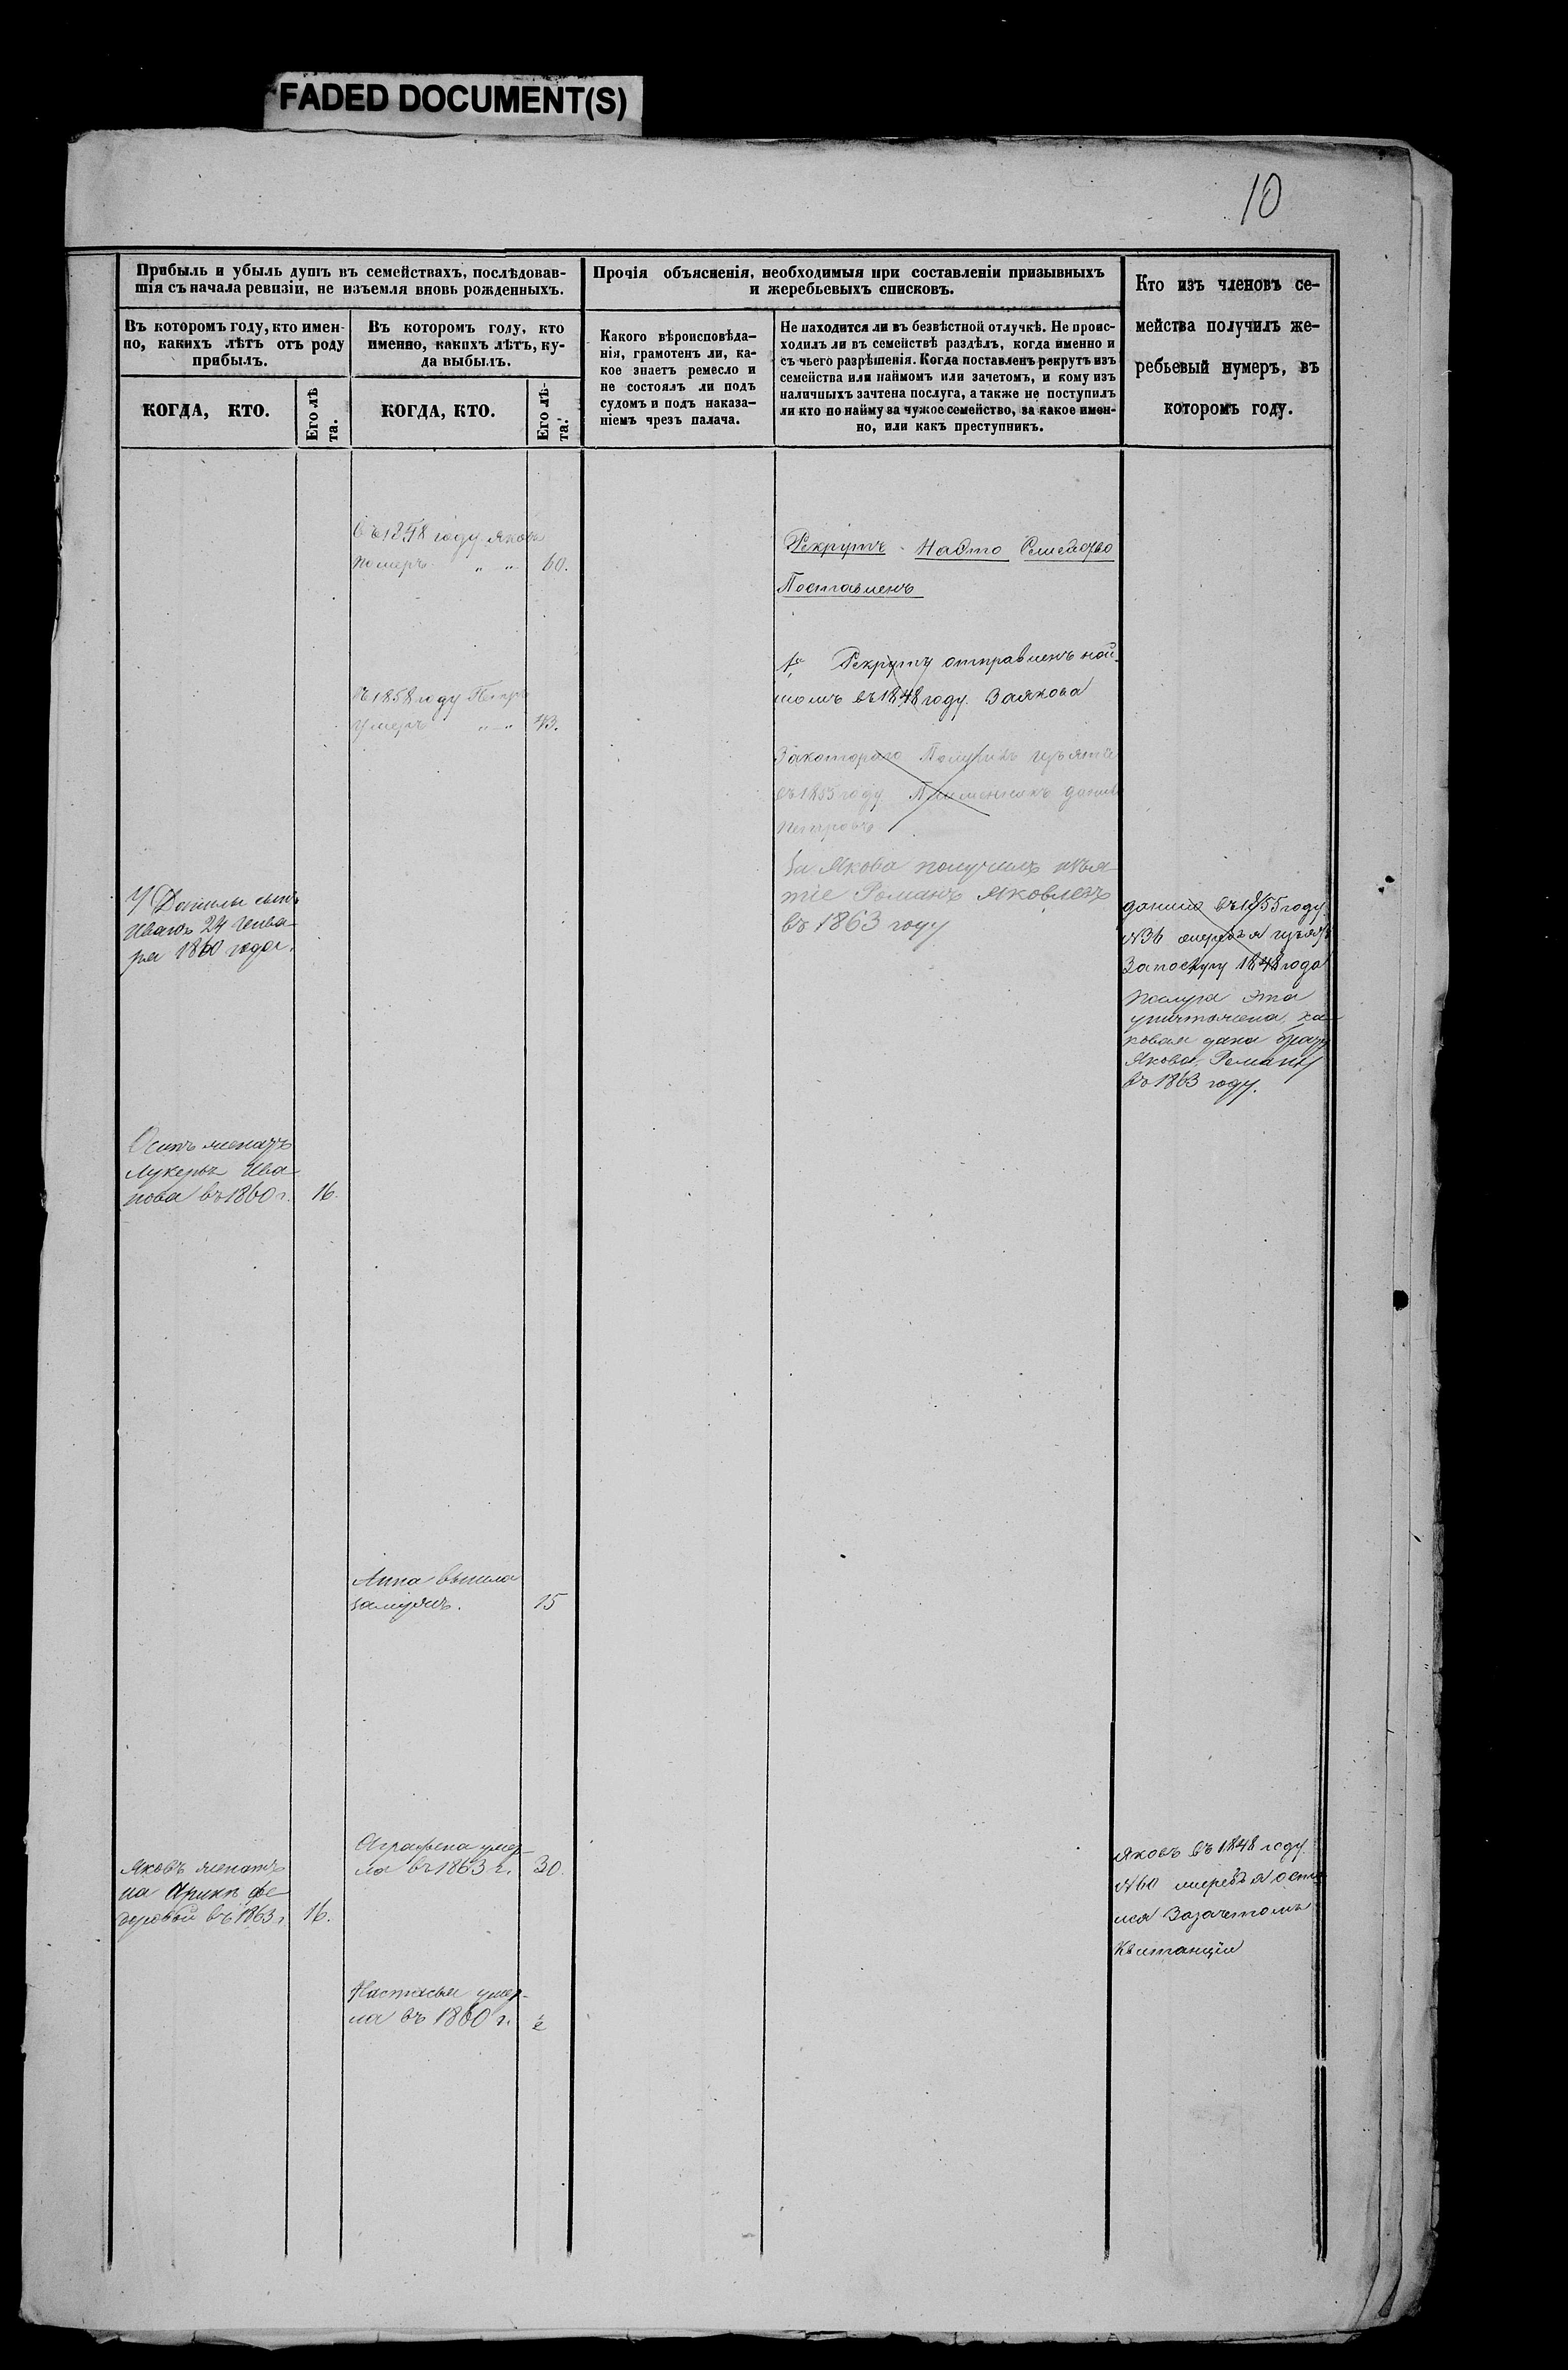 FADED DOCUMENT(S)
10
Прибыль и убыль душъ въ семействахъ, послѣдовав-
шія съ начала ревизіи, не изъемля вновь рожденныхъ.
Прочія объясненія, необходимыя при составленіи призывныхъ
и жеребьевыхъ списковъ.
Кто изъ членовъ се-
мейства получилъ же-
ребьевый нумеръ, въ
которомъ году.
Въ которомъ году, кто имен-
но, какихъ лѣтъ отъ роду
прибылъ.
Въ которомъ году, кто
именно, какихъ лѣтъ, ку-
да выбылъ.
Какого вѣроисповѣда-
нія, грамотенъ ли, ка-
кое знаетъ ремесло и
не состоялъ ли подъ
судомъ и подъ наказа-
ніемъ чрезъ палача.
Не находится ли въ безвѣстной отлучкѣ. Не проис-
ходилъ ли въ семействѣ раздѣлъ, когда именно и
съ чьего разрѣшенія. Когда поставленъ рекрутъ изъ
семейства или наймомъ или зачетомъ, и кому изъ
наличныхъ зачтена послуга, а также не поступилъ
ли кто по найму за чужое семейство, за какое имен-
но, или какъ преступникъ.
КОГДА, КТО.
Его лѣ
та.
КОГДА, КТО.
Его лѣ-
та.
въ 1858 году Яковъ
померъ " " 60.
Рекрутъ Насто Семейство
Поставленъ
1й Рекрутъ отправленъ най-
момъ въ 1848 году. За Якова
въ 1858 году Петръ
умеръ " " 43.
За котораго Получилъ изъятіе
въ 1855 году Племенникъ Данило
Петровъ
За Якова получилъ изъя-
тіе Романъ Яковлевъ
въ 1863 году
У Данилы сынъ
Иванъ 24 Генва-
ря 1860 года.
Данило въ 1855 году
№36 жеребья изъятъ
За послугу 1848 года
Послуга эта
уничтожена, ка-
ковая дана брату
Якова, Роману
въ 1863 году.
Осипъ женатъ
Лукерья Ива-
нова въ 1860 г. 16.
Анна вышла
замужъ. 15
Аграфена умер-
ла въ 1863 г. 30.
Яковъ женатъ
на Аринѣ Фе-
доровой въ 1863 г. 16.
Яковъ въ 1848 году
№60 жеребья остал
ся За зачетомъ
Квитанціи
Настасья умер-
ла въ 1860 г.